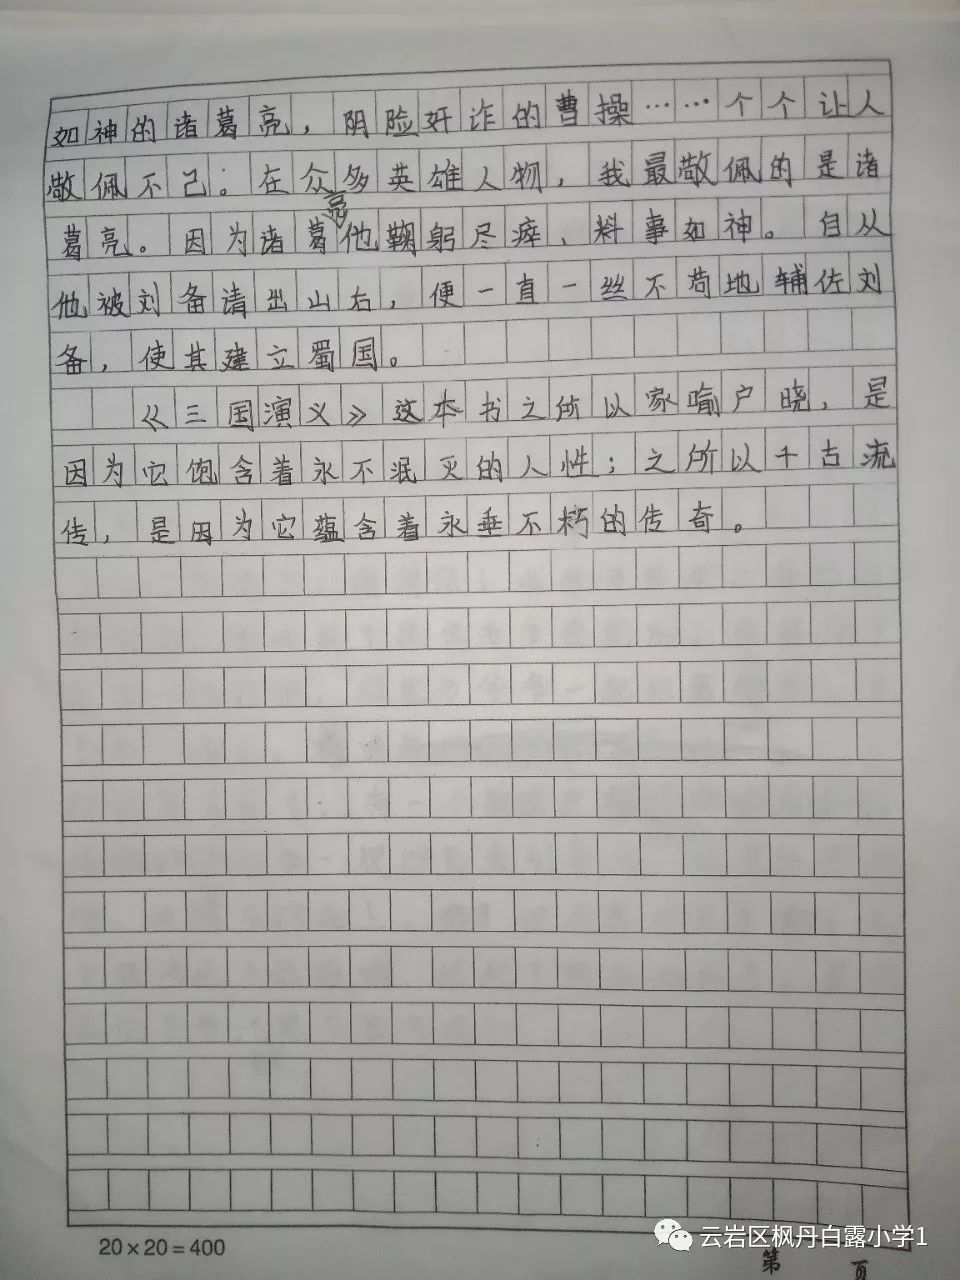 如神的诸葛亮，阴险奸诈的曹操……个个让人
敬佩不己。在众多英雄人物，我最敬佩的是诸
葛亮。因为诸葛亮他鞠躬尽瘁、料事如神。自从
他被刘备请出山右，便一直一丝不苟地辅佐刘
备，使其建立蜀国。
《三国演义》这本书之所以家喻户晓，是
因为它饱含着永不泯灭的人性；之所以千古流
传，是因为它蕴含着永垂不朽的传奇。
20×20=400
云岩区枫丹白露小学1
第 页